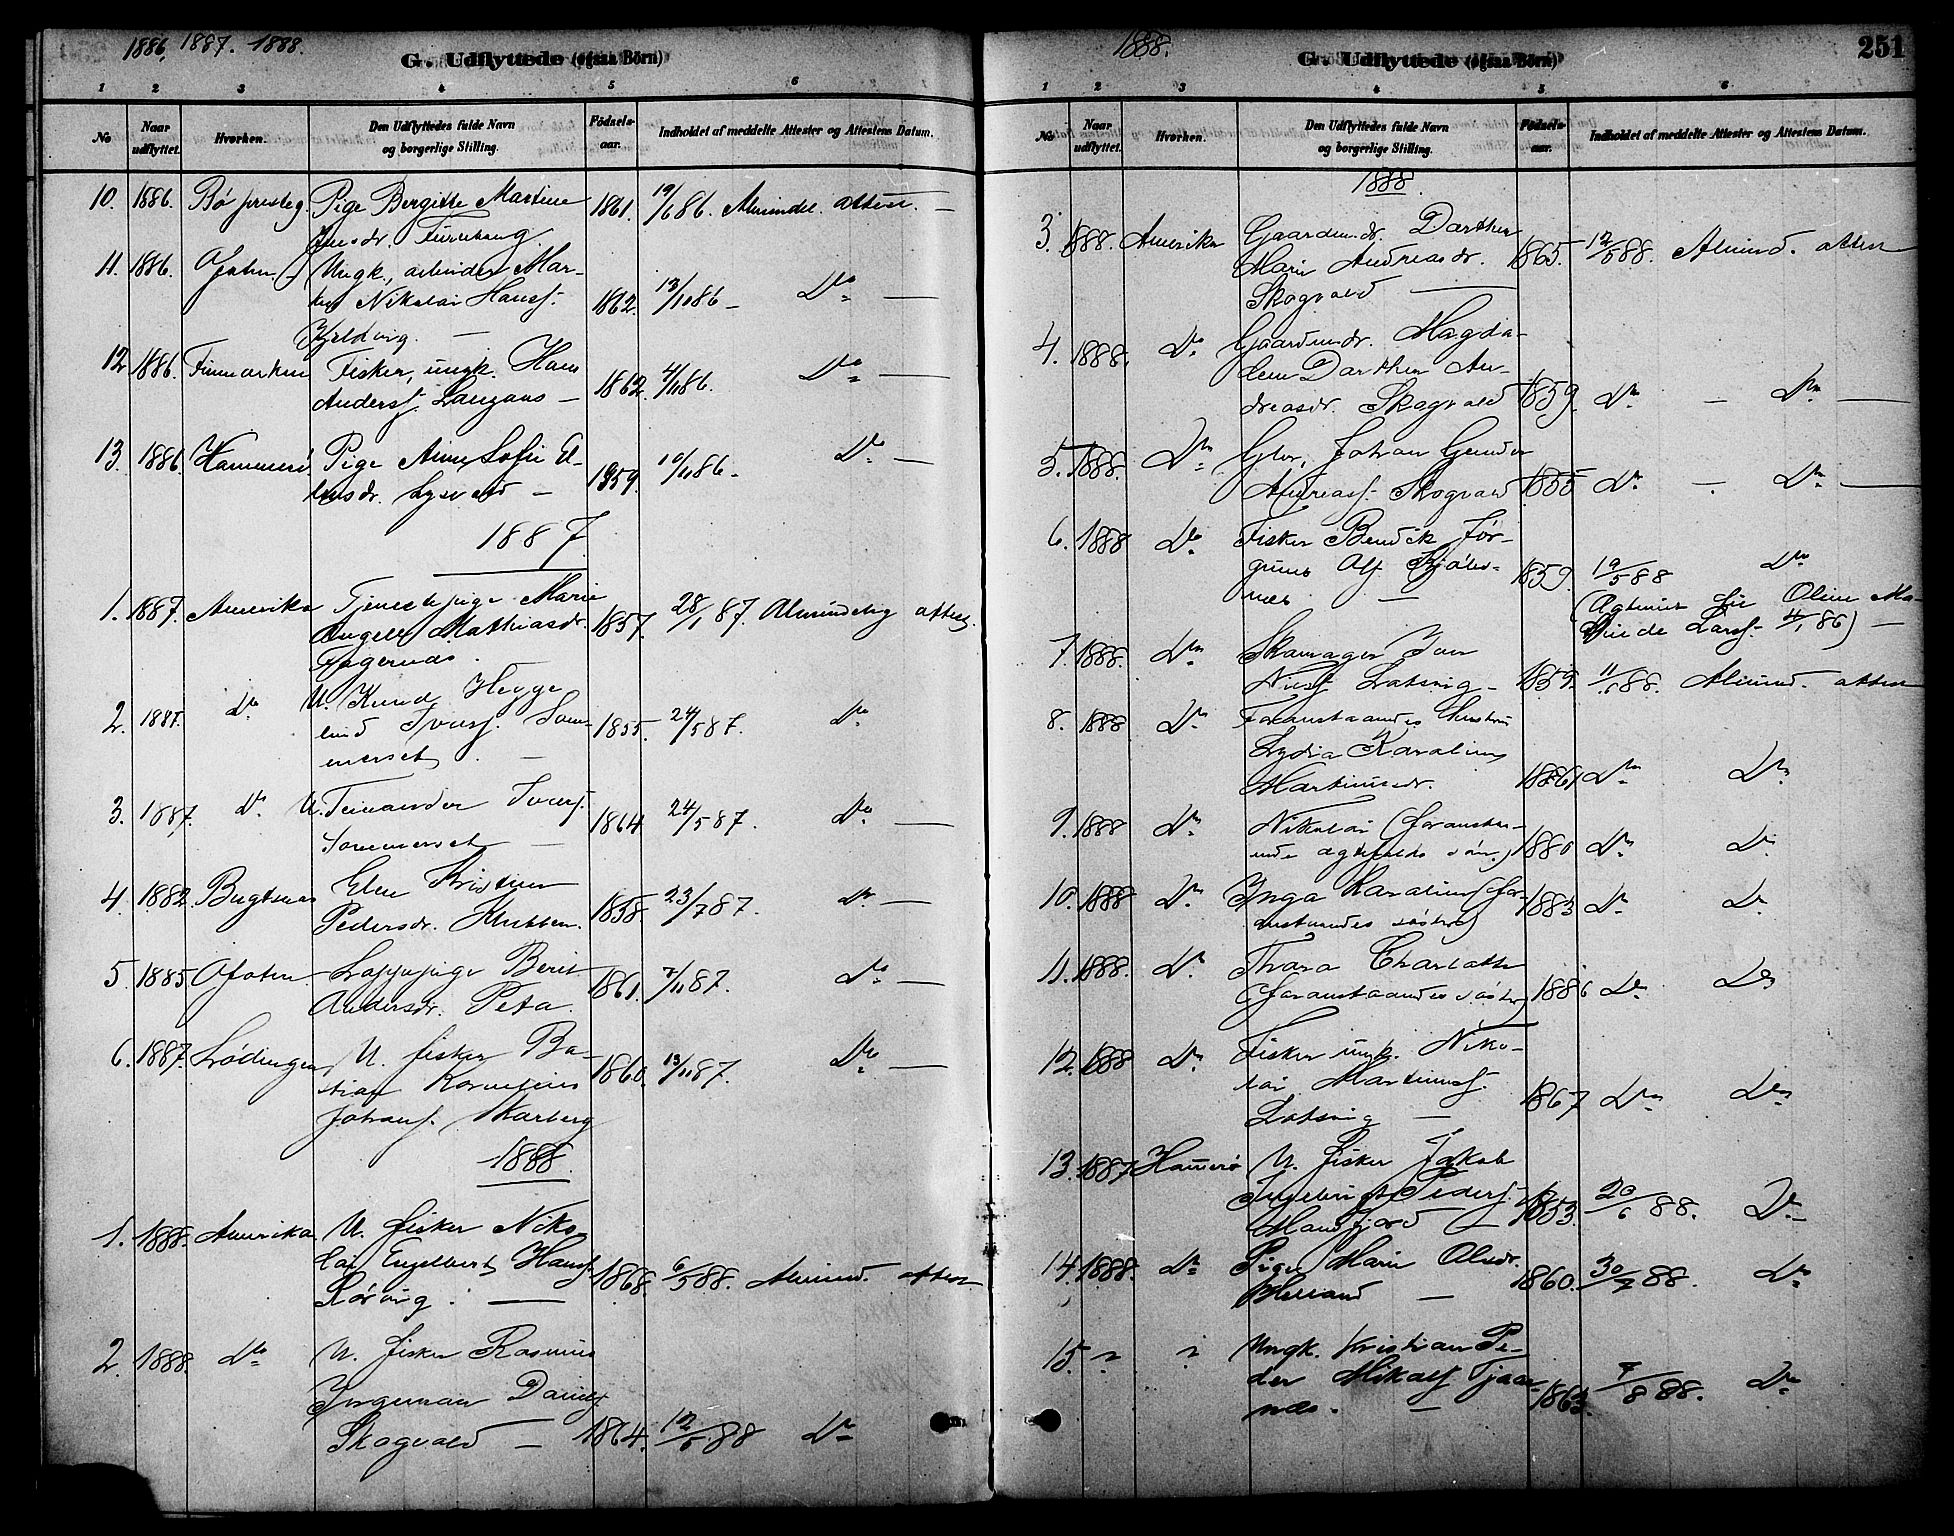 1886, 1887. 1888.
G. Udflyttede (ogsaa Börn)
1 2 3 4 5 6
No Naar udflyttet. Hvorhen. Den Udflyttedes fulde Navn og borgerlige Stilling. Fødsels-aar. Indholdet af meddelte Attester og Attestens Datum.
10. 1886. Bø presteg. Pige Bergitte Martine
Jensdr. 1861. 19/6 86. Almindel. attest. —
11. 1886. Ofoten Ungk., arbeider Mar-
Nikolai Hansf.
Kjeldvig. — 1862. 13/11 86 — Do —
12 1886. Finmarken Fisker, ungk. Hans
Andersf. — 1862. 4/11 86. Do —
13. 1886. Hammerø Pige Anne Sofie E-
— 1859. 10/11 86 - Do —
1887
1. 1887. Amerika Tjenestepige Marie
Angell Mathiasdr.
Fagernæs. 1857. 28/1 87. Almindelig attest.
2. 1887. Do U. Knud Hegge-
lund Iversf. Som-
merset — 1855. 24/5 87. Do
3. 1887. Do U. Iversf.
Sommerset — 1864. 24/5 87. Do —
4. 1882. Bugtnæs Elen Kristine
Pedersdr. Klubben. 1858. 23/7 87. Do —
5 1885 Ofoten Lappepige Berit
Andersdr. Peta. 1861. 7/11 87. Do —
6. 1887. Lødingen U. fisker Ba-
stian Kornelius
Johansf. Skarberg 1860. 13/11 87. Do —
1888.
1. 1888. Amerika U. fisker Niko-
lai Engelbert Hansf.
Rørvig. — 1868. 6/5 88. Almind. attest
2 1888. Do U. fisker Rasmus
Ingeman Danielsf.
Skogvold — 1864. 12/5 88 Do
1888. 251
G. Udflyttede (ogsaa Börn)
1 2 3 4 5 6
No Naar udflyttet. Hvorhen. Den Udflyttedes fulde Navn og borgerlige Stilling. Fødsels-aar. Indholdet af meddelte Attester og Attestens Datum.
1888.
3. 1888. Amerika Gaardmdr. Darthea
Marie Andreasdr.
Skogvold — 1865. 12/5 88. Almind. attest
4. 1888. Do Gaardmdr. Magda-
lena Darthea An-
dreasdr. Skogvold 1859. Do — Do —
5. 1888. Do Gbr. Johan
Andreasf. Skogvold 1855 Do — Do —
6. 1888 Do Fisker Bendik Jør-
næs — 1859. 19/5 88 Do
( for Oline Ma-
Larsf. 4/1 86) —
7. 1888. Do Skomager
— 1859. 11/6 88. Almind. attest
8. 1888 Do Foranstaaendes Hustru
Lydia Karoline
Martinusdr. 1861 Do Do
9. 1888 Do Nikolai (foranstaa-
ende ægtefolks søn.) 1880 Do Do
10. 1888 Do Inga Karoline (for-
anstaaendes søster) 1883 Do Do
11. 1888. Do Thora Charlotte
(foranstaaendes søster) 1886 Do Do
12. 1888 Do Fisker ungk. Niko-
lai Martinusf.
— 1867 Do Do
13. 1887 Hammerø U. fisker Jakob
Ingebrigt Pedersf.
— 1853. 20/6 88. Do —
14. 1888. Do Pige Marie Olsdr.
— 1860. 30/7 88. Do
15. " " Ungk. Kristian Pe-
der Mikalsf. Tjaar-
næs. — 1863. 7/8 88. Do